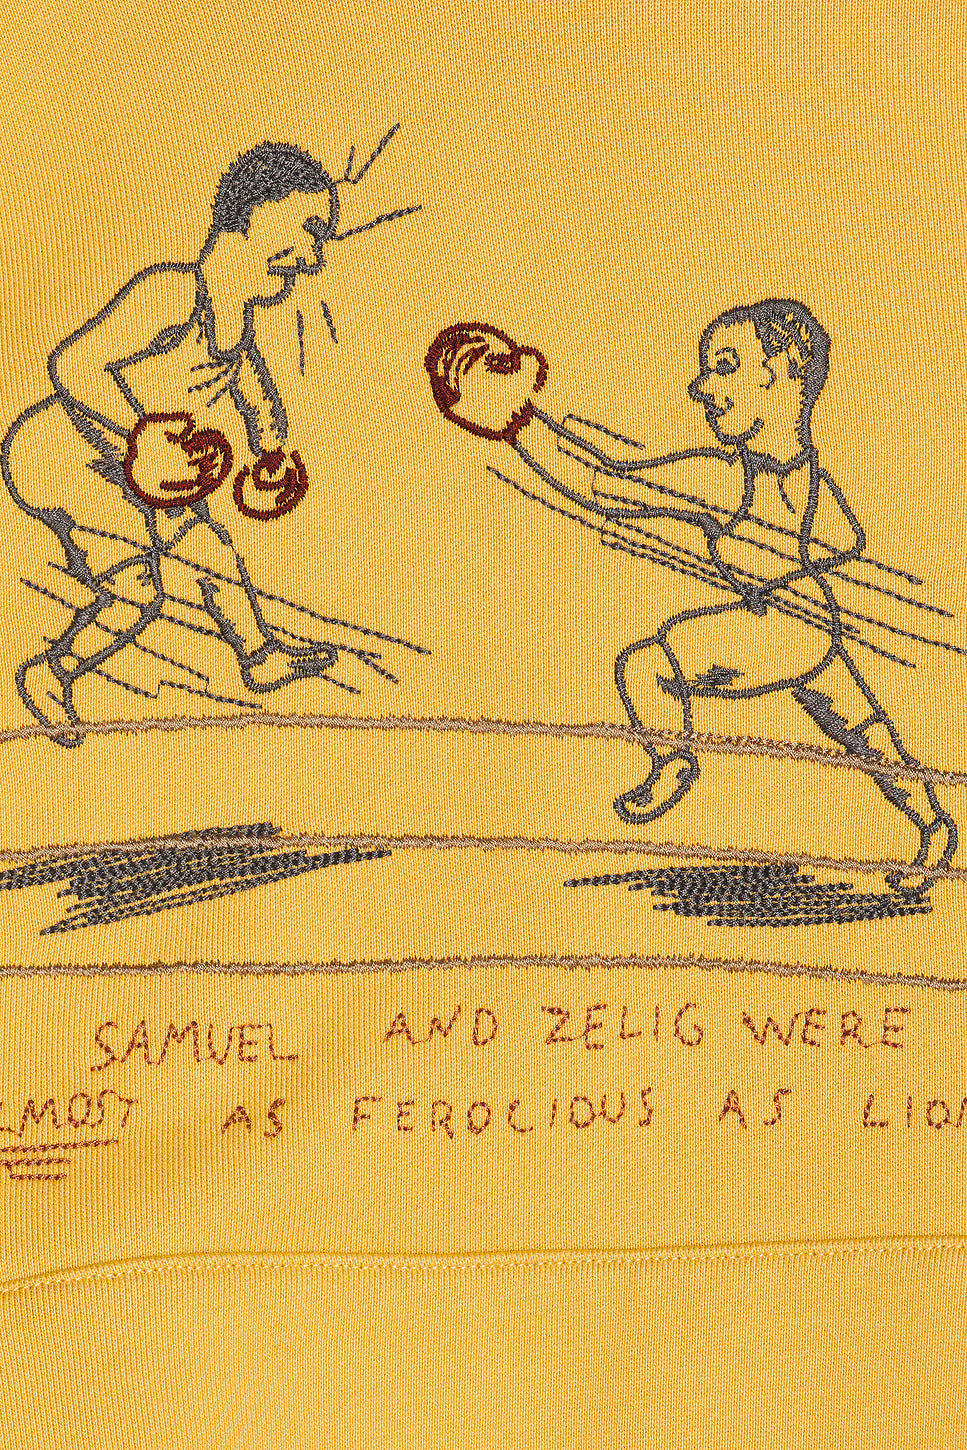 SAMUEL AND ZELIG WERE
ALMOST AS FEROCIOUS AS LION